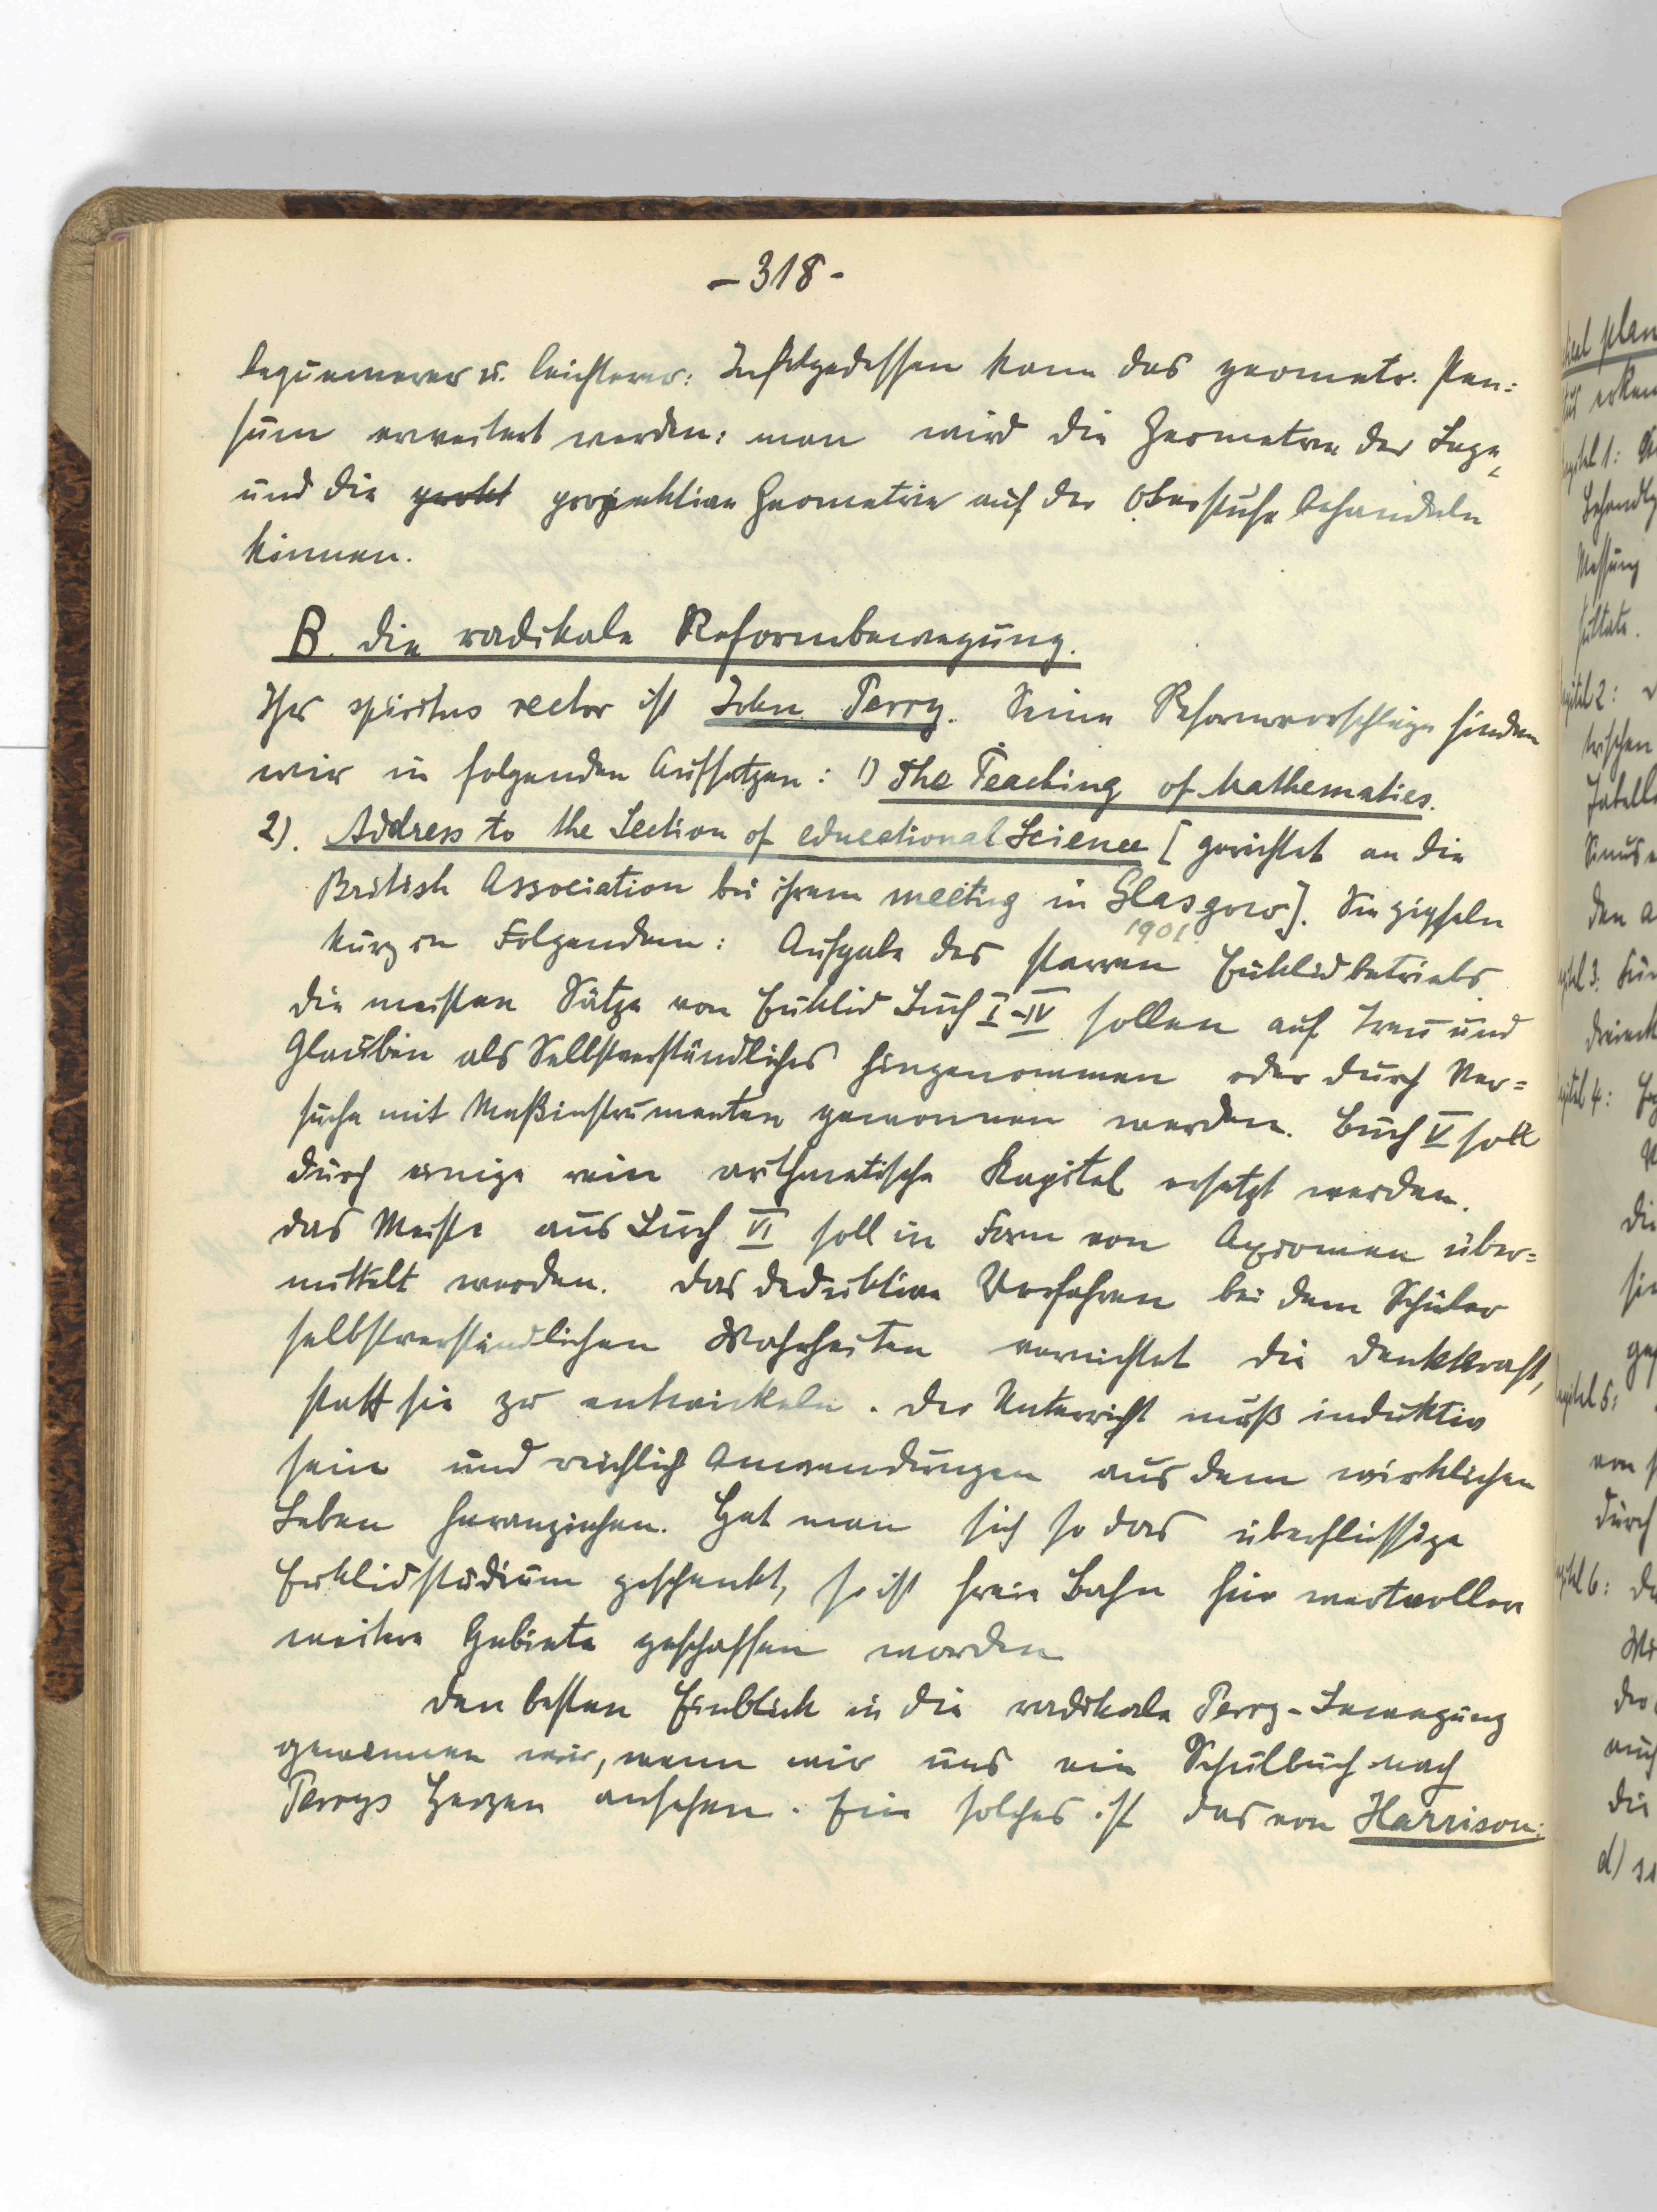 – 318 –
bequemerer u. leichterer: Infolgedessen kann das geometr. Pen=
sum erweitert werden: man wird die Geometrie der Lage,
und die projektive Geometrie auf der Oberstufe behandeln
können.
B. die radikale Reformbewegung.
Ihr spiritus rector ist John Perry. Seine Reformvorschläge finden
wir in folgenden Aufsätzen: 1) The Teaching of Mathematics.
2). Address to the Section of educational Science [gerichtet an die
British Association bei ihrem meeting in Glasgow]. Sie gipfeln
1901
kurz in Folgendem: Aufgabe des starren Euklidbetriebs.
die meisten Sätze von Euklid Buch I–IV sollen auf Treu und
Glauben als Selbstverständliches hingenommen oder durch Ver=
suche mit Meßinstrumenten gewonnen werden. Buch V soll
durch einige rein arithmetische Kapitel ersetzt werden.
das Meiste aus Buch VI soll in Form von Axiomen über=
mittelt werden. das deduktive Verfahren bei dem Schüler
selbstverständlichen Wahrheiten vernichtet die Denkkraft,
statt sie zu entwickeln. der Unterricht muß induktiv
sein und reichlich Anwendungen aus dem wirklichen
Leben heranziehen. Hat man sich so das überflüssige
Euklidstudium geschenkt, so ist freie Bahn für wertvollere
weitere Gebiete geschaffen worden
den besten Einblick in die radikale Perry-Bewegung
gewinnen wir, wenn wir uns ein Schulbuch nach
Perrys Herzen ansehen. Ein solches ist das von Harrison: